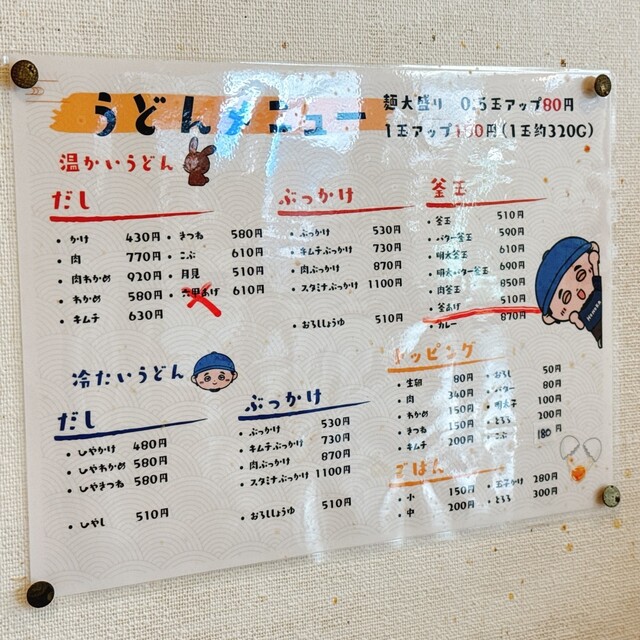 うどんメニュー
麺大盛り 0.5玉アップ80円
1玉アップ150円(1玉約320G)
温かいうどん
だし
・かけ 430円
・肉 770円
・肉わかめ 920円
・わかめ 580円
・キムチ 630円
・きつね 580円
・こぶ 610円
・月見 510円
610円
ぶっかけ
・ぶっかけ 530円
・キムチぶっかけ 730円
・肉ぶっかけ 870円
・スタミナぶっかけ 1100円
・おろししょうゆ 510円
釜玉
・釜玉 510円
・バター釜玉 590円
・明太釜玉 610円
・明太バター釜玉 690円
・肉釜玉 850円
・釜あげ 510円
・カレー 870円
冷たいうどん
だし
・しやかけ 480円
・しやわかめ 580円
・しやきつね 580円
・しやし 510円
ぶっかけ
・ぶっかけ 530円
・キムチぶっかけ 730円
・肉ぶっかけ 870円
・スタミナぶっかけ 1100円
・おろししょうゆ 510円
トッピング
・生卵 80円
・肉 340円
・わかめ 150円
・きつね 150円
・キムチ 200円
・おろし 50円
・バター 80円
・明太子 100円
・とろろ 200円
・こぶ 180円
ごはん
・小 150円
・中 200円
・玉子かけ 280円
・とろろ 300円